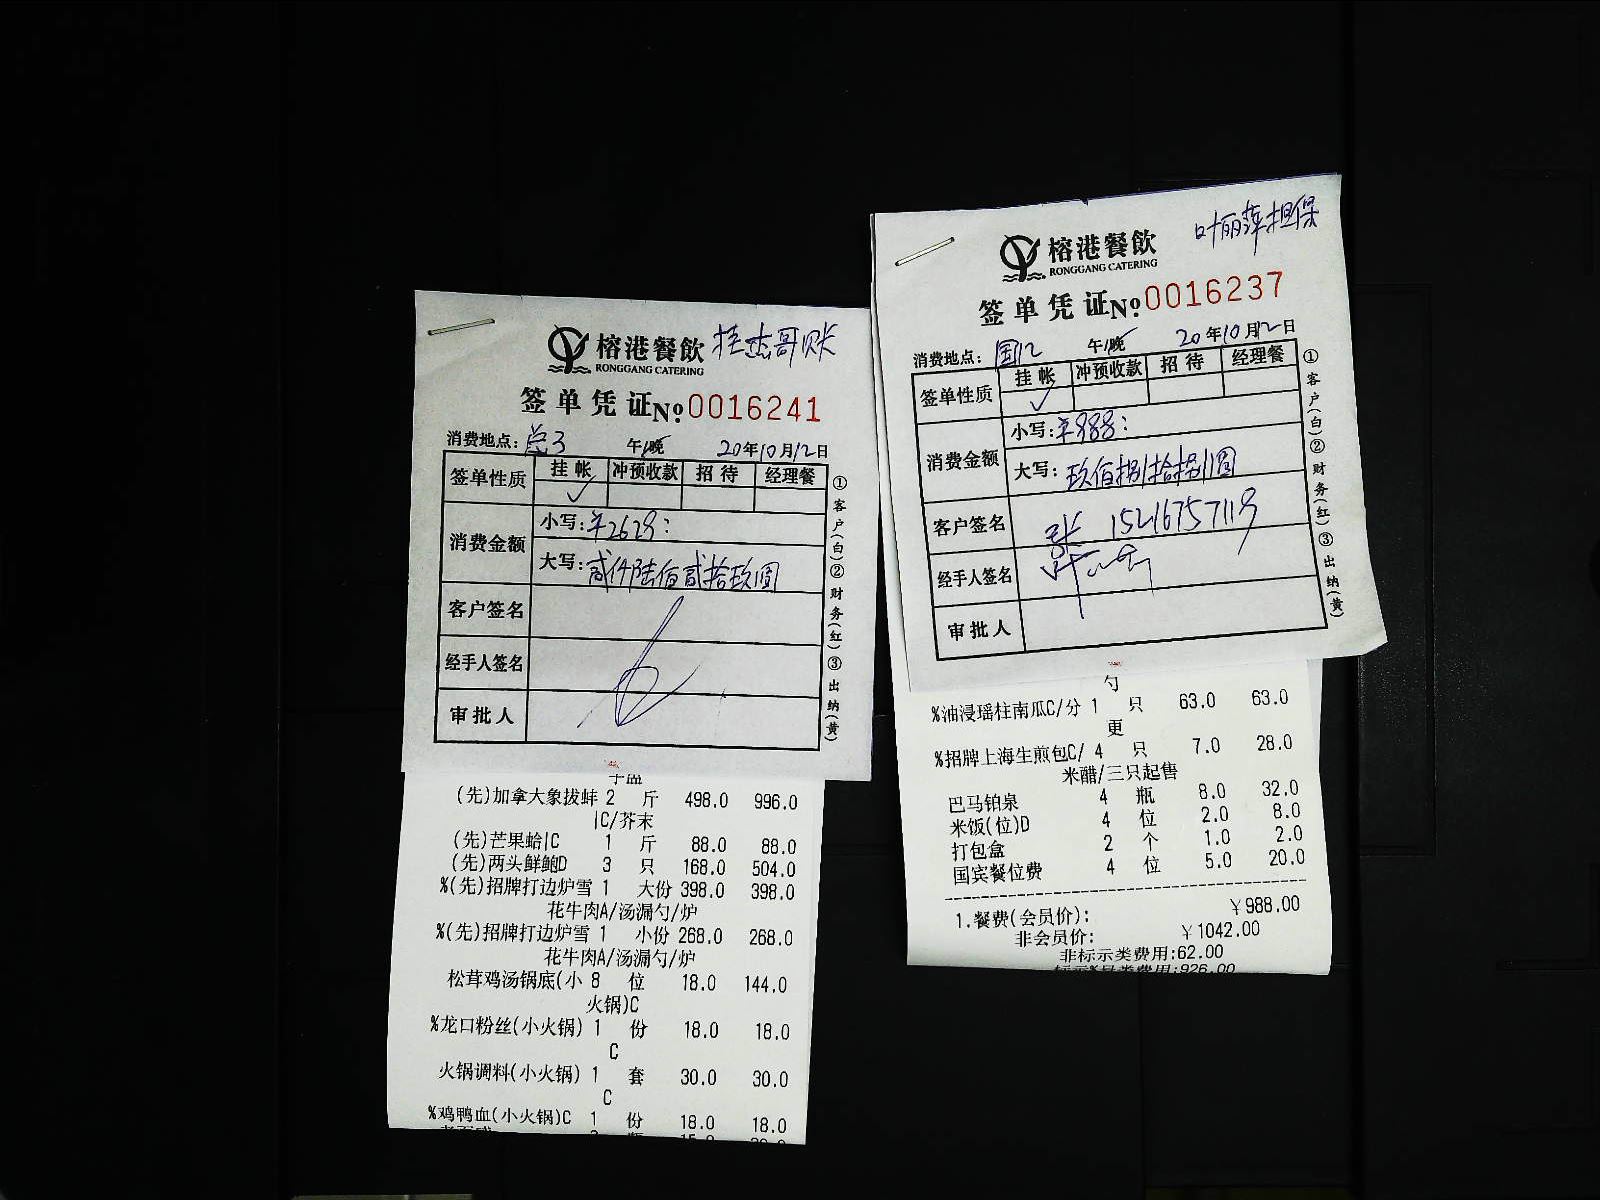 榕港餐飲 挂杰哥账
RONGGANG CATERING
签单凭证 №0016241
消费地点: 总3 午/晚 20年10月12日
签单性质 挂帐 冲预收款 招待 经理餐
✓
消费金额 小写:¥2629:
大写:贰仟陆佰贰拾玖圆
客户签名
经手人签名
审批人
①客户(白)②财务(红)③出纳(黄)
(先)加拿大象拔蚌 2 斤 498.0 996.0
|C/芥末
(先)芒果蛤|C 1 斤 88.0 88.0
(先)两头鲜鲍D 3 只 168.0 504.0
%(先)招牌打边炉雪 1 大份 398.0 398.0
花牛肉A/汤漏勺/炉
%(先)招牌打边炉雪 1 小份 268.0 268.0
花牛肉A/汤漏勺/炉
松茸鸡汤锅底(小 8 位 18.0 144.0
火锅)C
%龙口粉丝(小火锅) 1 份 18.0 18.0
C
火锅调料(小火锅) 1 套 30.0 30.0
C
%鸡鸭血(小火锅)C 1 份 18.0 18.0
叶丽萍担保
榕港餐飲
RONGGANG CATERING
签单凭证 №0016237
消费地点: 国12 午/晚 20年10月12日
签单性质 挂帐 冲预收款 招待 经理餐
✓
消费金额 小写:¥988:
大写:玖佰捌拾捌圆
客户签名 张 15216757119
经手人签名
审批人
①客户(白)②财务(红)③出纳(黄)
勺
%油浸瑶柱南瓜C/分 1 只 63.0 63.0
更
%招牌上海生煎包C/ 4 只 7.0 28.0
米醋/三只起售
巴马铂泉 4 瓶 8.0 32.0
米饭(位)D 4 位 2.0 8.0
打包盒 2 个 1.0 2.0
国宾餐位费 4 位 5.0 20.0
1.餐费(会员价): ¥988.00
非会员价: ¥1042.00
非标示类费用:62.00